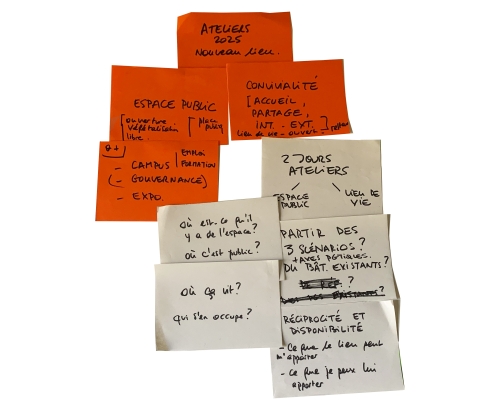 ATELIERS
2025
NOUVEAU LIEU.
ESPACE PUBLIC
[ouverture
végétalisation
libre
[place
publique
CONVIVIALITÉ
[ACCUEIL,
PARTAGE,
INT. - EXT.
lieu de vie - ouvert]
Q+
- CAMPUS
(- GOUVERNANCE)
- EXPO.
EMPLOI
FORMATION
2 JOURS
ATELIERS
ESPACE
PUBLIC
LIEU DE
VIE
Où est-ce qu'il
y a de l'espace?
Où c'est public?
PARTIR DES
3 SCÉNARIOS?
DU BÂT. EXISTANTS?
Où ça vit?
qui s'en occupe?
RÉCIPROCITÉ ET
DISPONIBILITÉ
- Ce que le lieu peut
m'apporter
- Ce que je peux lui
apporter